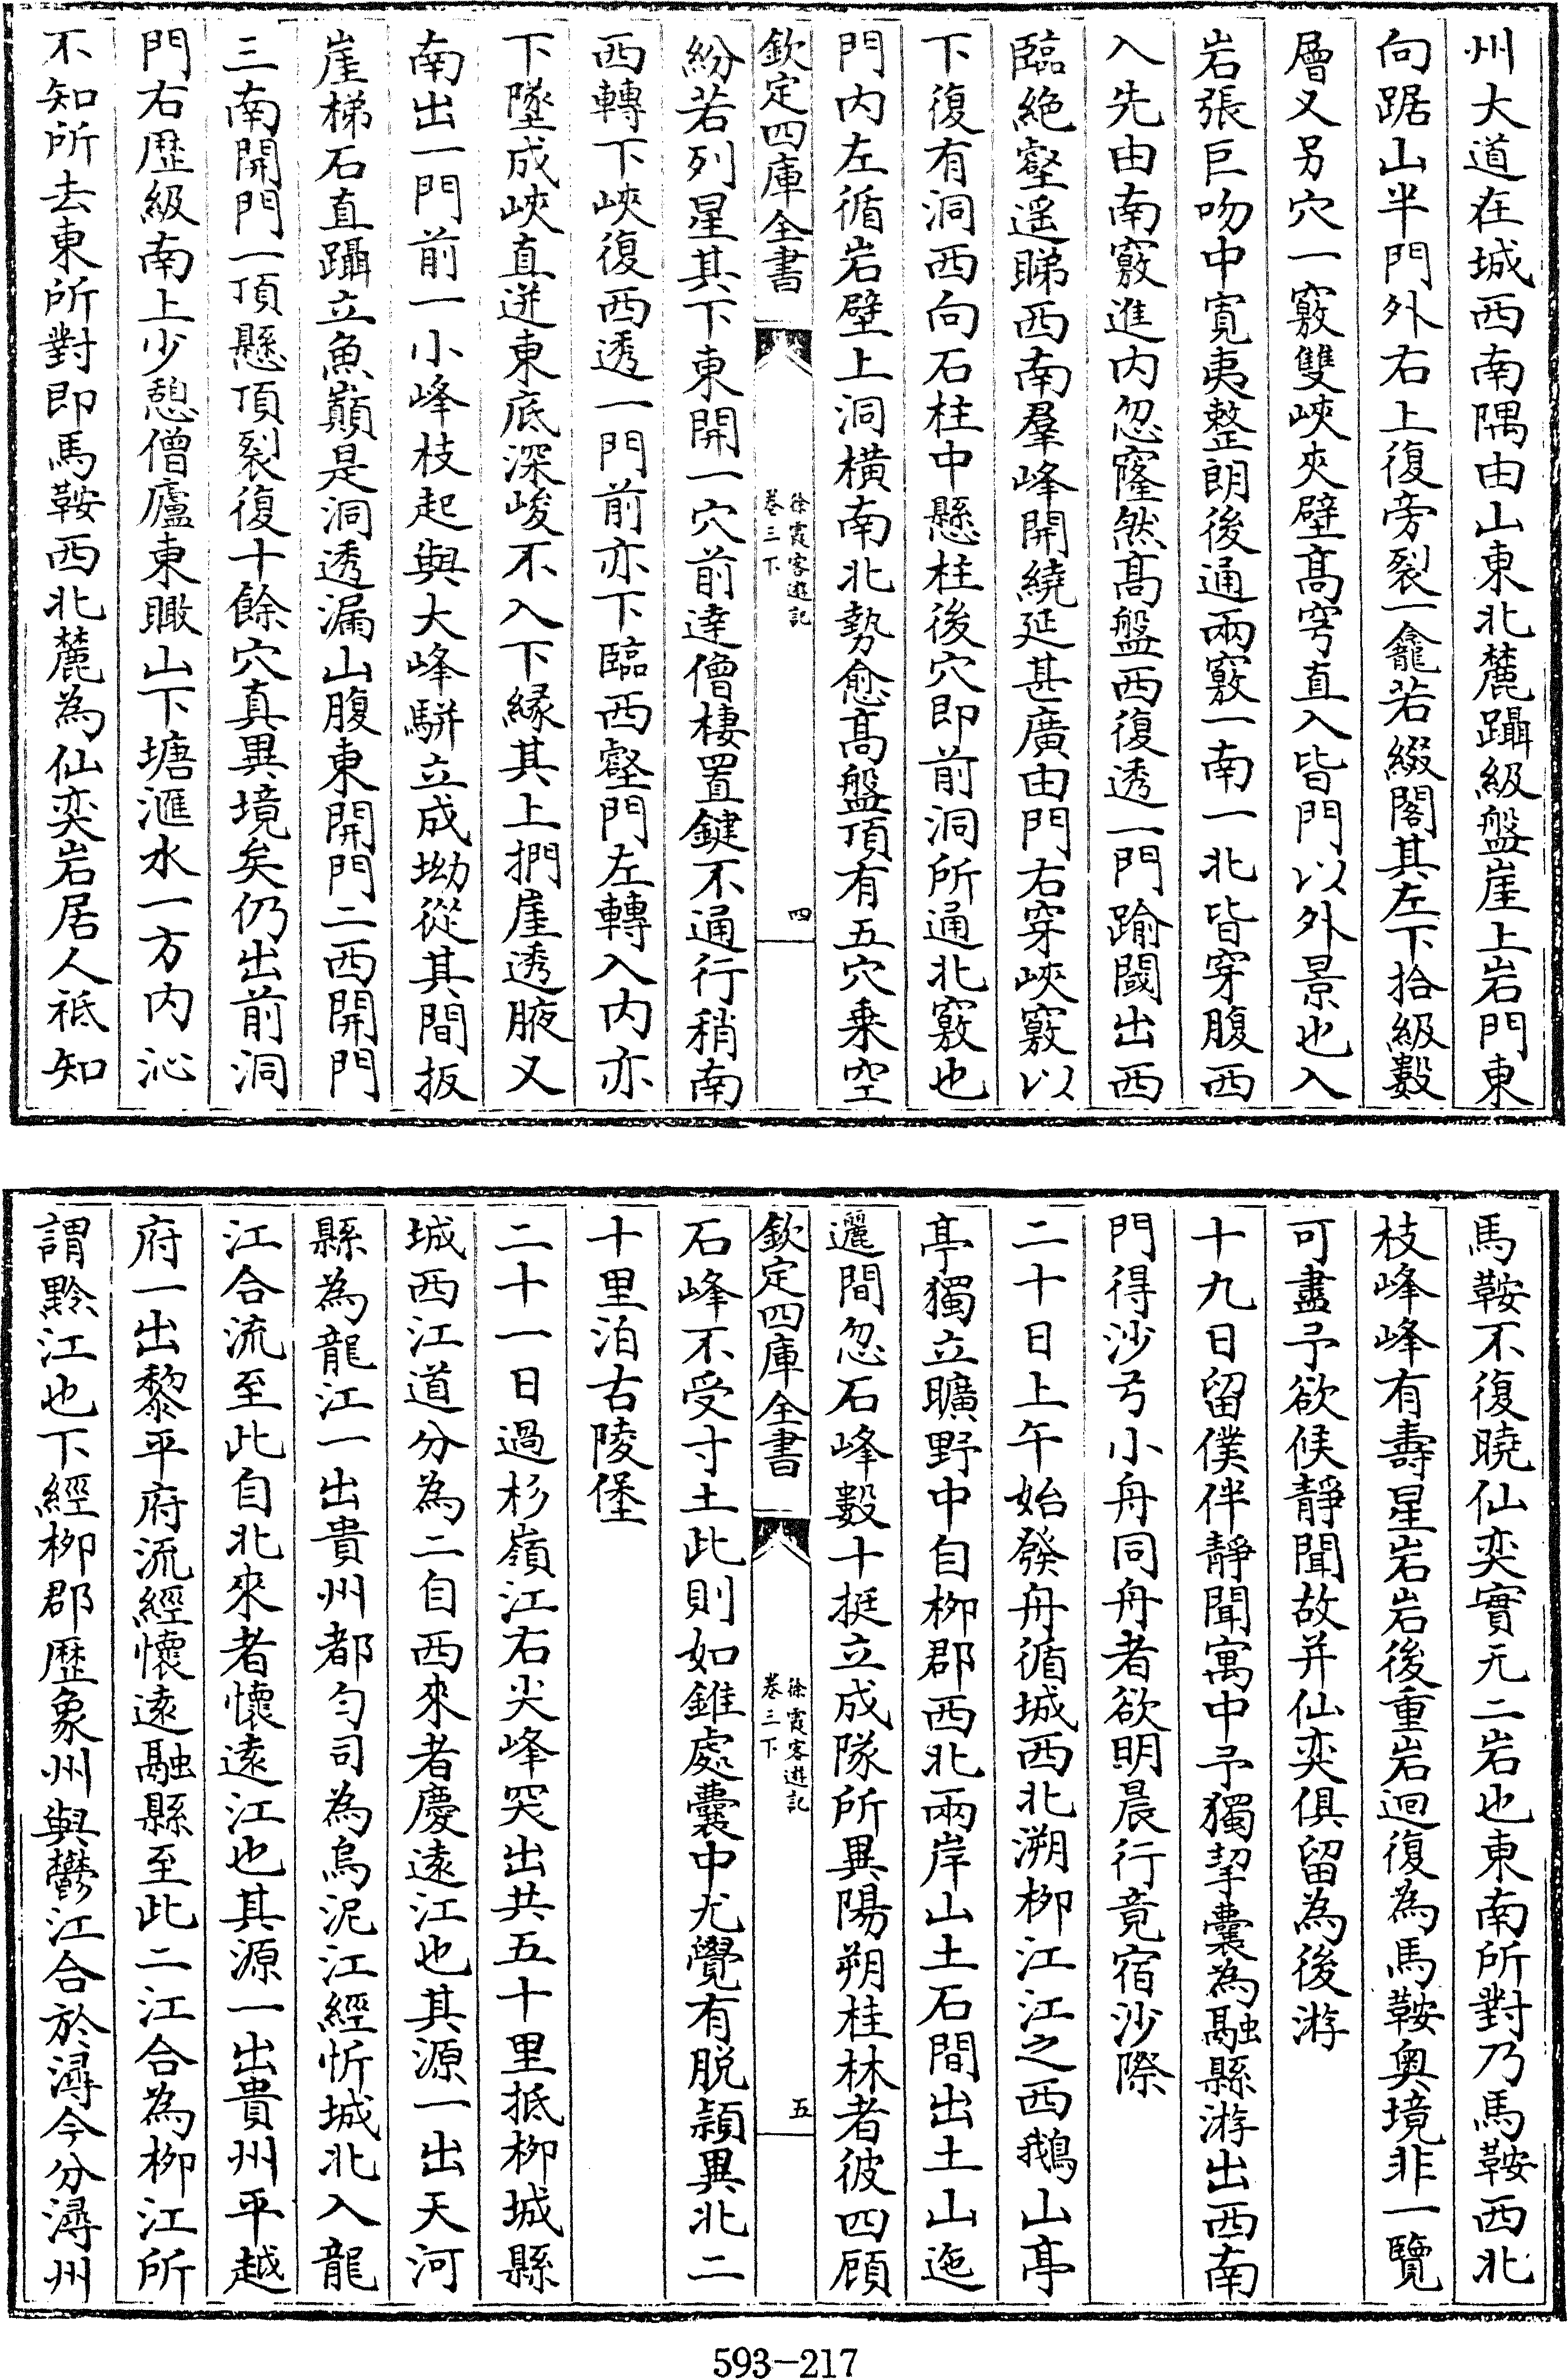 州大道在城西南隅由山東北麓躡級盤崖上岩門東
向踞山半門外右上復旁裂一龕若綴閣其左下拾級數
層又另穴一竅雙峽夾壁髙穹直入皆門以外景也入
岩張巨吻中寬夷整朗後通兩竅一南一北皆穿腹西
入先由南竅進内忽窿然髙盤西復透一門踰閾出西
臨絶壑遥睇西南羣峰開繞延甚廣由門右穿峽竅以
下復有洞西向石柱中懸柱後穴即前洞所通北竅也
門内左循岩壁上洞横南北勢愈髙盤頂有五穴乗空
欽定四庫全書
徐霞客遊記
卷三下
四
紛若列星其下東開一穴前達僧棲置鍵不通行稍南
西轉下峽復西透一門前亦下臨西壑門左轉入内亦
下墜成峽直迸東底深峻不入下縁其上捫崖透腋又
南出一門前一小峰枝起與大峰騈立成坳從其間扳
崖梯石直躡立魚巔是洞透漏山腹東開門二西開門
三南開門一頂懸頂裂復十餘穴真異境矣仍出前洞
門右歴級南上少憩僧廬東瞰山下塘滙水一方内沁
不知所去東所對即馬鞍西北麓為仙奕岩居人祗知
馬鞍不復曉仙奕實无二岩也東南所對乃馬鞍西北
枝峰峰有壽星岩岩後重岩迴復為馬鞍奥境非一覽
可盡予欲候靜聞故并仙奕俱留為後游
十九日留僕伴靜聞寓中予獨挈囊為融縣游出西南
門得沙弓小舟同舟者欲明晨行竟宿沙際
二十日上午始發舟循城西北溯栁江江之西鵝山亭
亭獨立曠野中自栁郡西北兩岸山土石間出土山迤
邐間忽石峰數十挺立成隊所異陽朔桂林者彼四顧
欽定四庫全書
徐霞客遊記
卷三下
五
石峰不受寸土此則如錐處囊中尤覺有脱頴異北二
十里泊古陵堡
二十一日過杉嶺江右尖峰突出共五十里抵栁城縣
城西江道分為二自西來者慶逺江也其源一出天河
縣為龍江一出貴州都勻司為烏泥江經忻城北入龍
江合流至此自北來者懷逺江也其源一出貴州平越
府一出黎平府流經懷逺融縣至此二江合為栁江所
謂黔江也下經栁郡歴象州與鬱江合於潯今分潯州
593-217